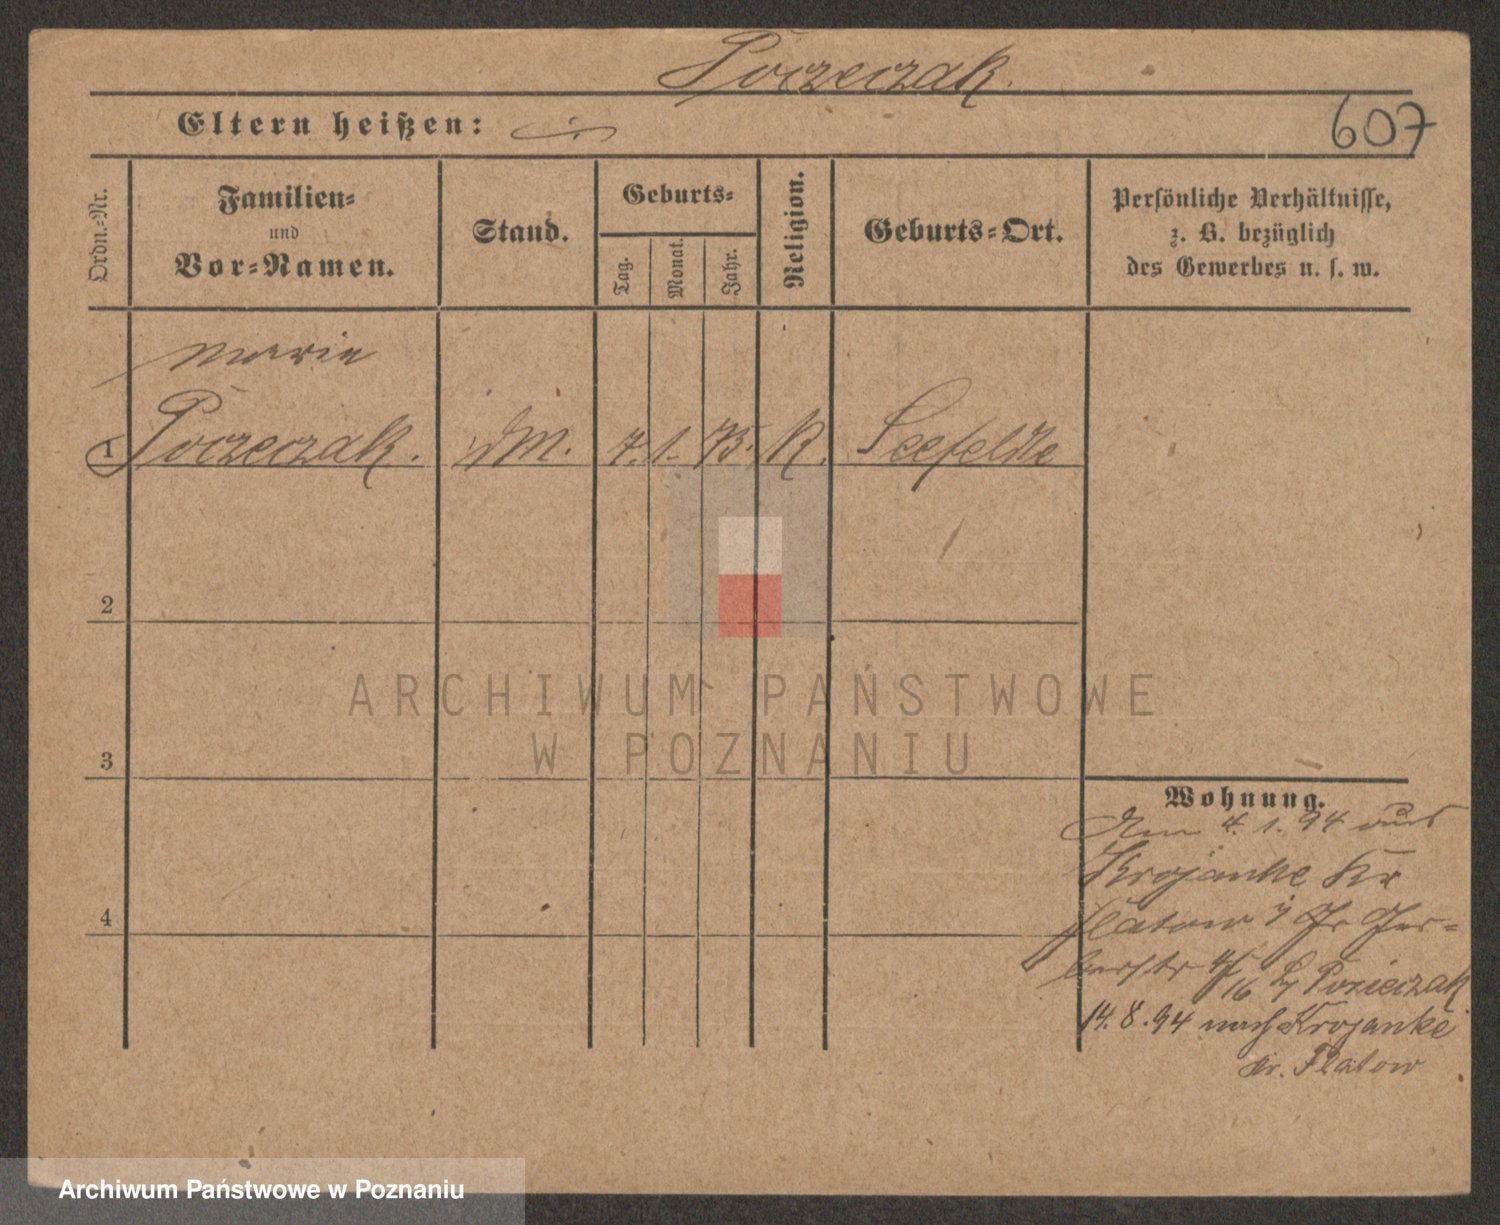 Poczeczak.
Eltern heißen:
607
Ordn.-Nr.
Familien-
und
Vor-Namen.
Stand.
Geburts-
Tag.
Monat.
Jahr.
Religion.
Geburts-Ort.
Persönliche Verhältnisse,
z. B. bezüglich
des Gewerbes u. s. w.
Marie
1 Poczeczak. DM. 7. 1. 73. K. Seefelde
2
3
4
ARCHIWUM PAŃSTWOWE
W POZNANIU
Wohnung.
Am 4. 1. 94 aus
Krojanke Kr
Flatow
14. 8. 94 nach Krojanke
Kr. Flatow
Archiwum Państwowe w Poznaniu